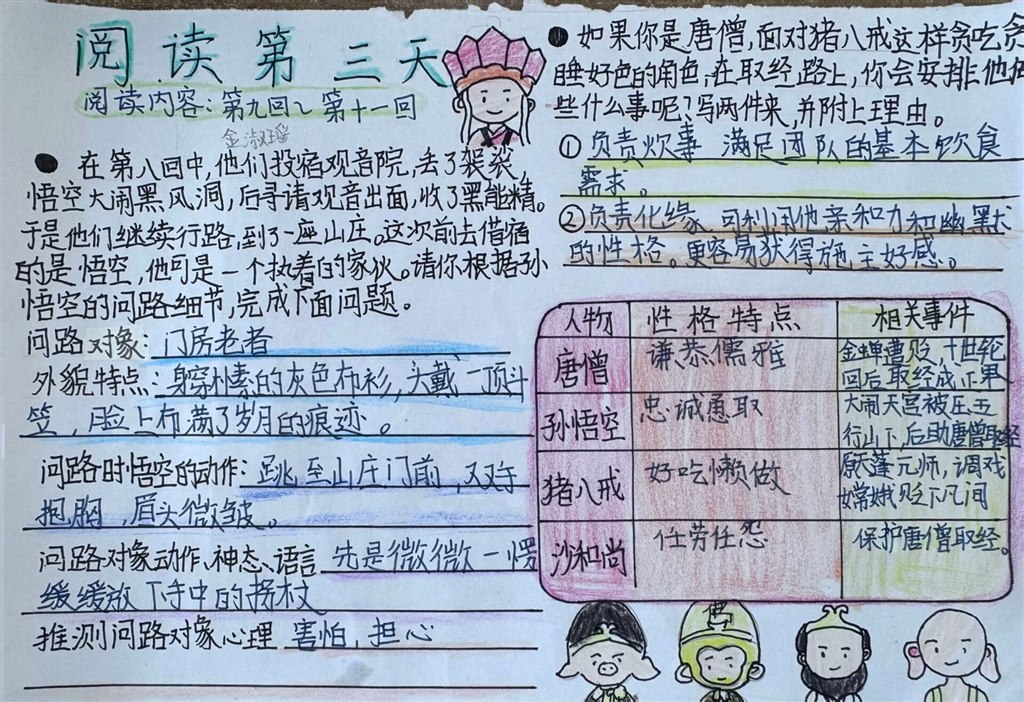 阅读第三天
阅读内容:第九回~第十一回
金淑瑶
●在第八回中,他们投宿观音院,丢了袈裟,
悟空大闹黑风洞,后寻请观音出面,收了黑熊精。
于是他们继续行路,到了一座山庄。这次前去借宿
的是悟空,他可是一个执着的家伙。请你根据孙
悟空的问路细节,完成下面问题。
问路对象:门房老者
外貌特点:身穿朴素的灰色布衫,头戴一顶斗
笠,脸上布满了岁月的痕迹。
问路时悟空的动作:跳至山庄门前,双手
抱胸,眉头微皱。
问路对象动作、神态、语言 先是微微一愣
缓缓放下手中的拐杖
推测问路对象心理 害怕,担心
●如果你是唐僧,面对猪八戒这样贪吃贪
睡好色的角色,在取经路上,你会安排他做
些什么事呢?写两件来,并附上理由。
①负责炊事 满足团队的基本饮食
需求。
②负责化缘 可利用他亲和力和幽默
的性格。更容易获得施主好感。
人物 性格特点 相关事件
唐僧 谦恭儒雅 金蝉遭贬,十世轮
回后取经成正果
孙悟空 忠诚勇敢 大闹天宫被压五
行山下,后助唐僧取经
猪八戒 好吃懒做 原天蓬元帅,调戏
嫦娥贬下凡间
沙和尚 任劳任怨 保护唐僧取经。
佛